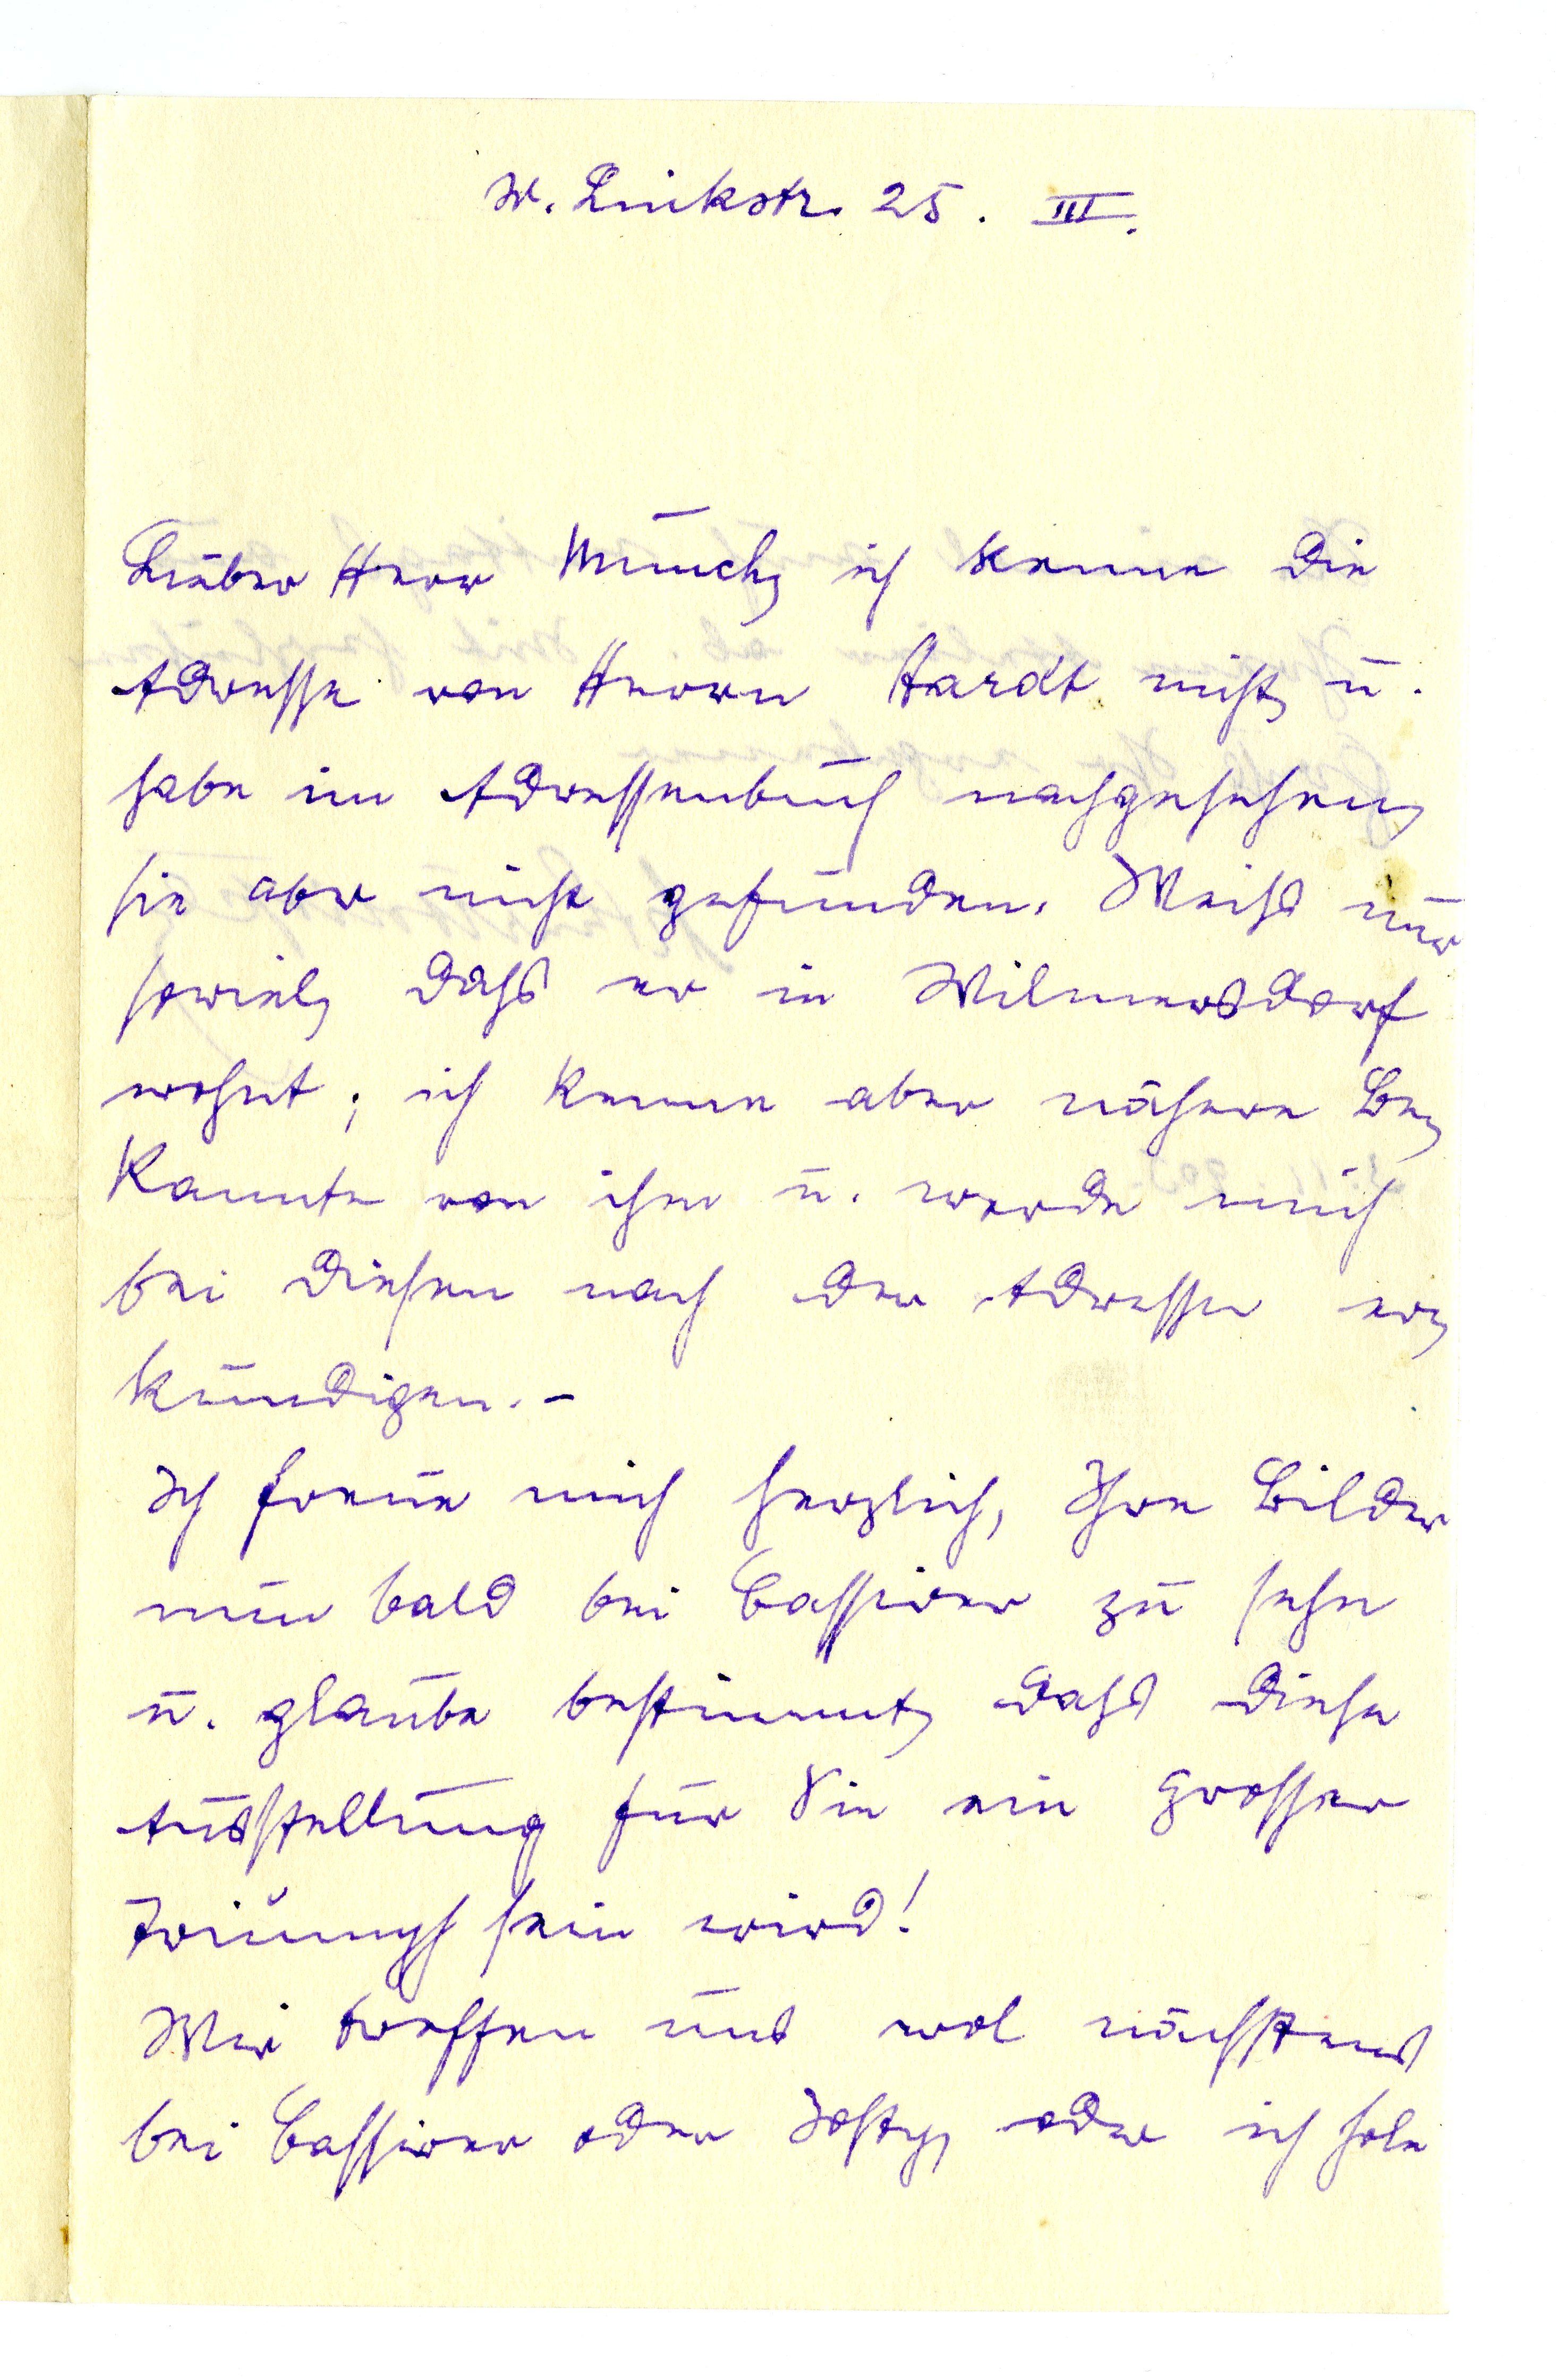 W. Linkstr. 25. III.
Lieber Herr Munch, ich kenne die
Adresse von Herrn Hardt nicht, u.
habe im Adressenbuch nachgesehen,
sie aber nicht gefunden. Weiss nur
soviel, dass er in Wilmersdorf
wohnt; ich kenne aber nähere Be-
kannte von ihm u. werde mich
bei diesen nach der Adresse er-
kundigen. -
Ich freue mich herzlich, Ihre Bilder
nun bald bei Cassirer zu sehn
u. glaube bestimmt, dass diese
Ausstellung für Sie ein grosser
Triumph sein wird!
Wir treffen uns wol nächstens
bei Cassirer oder Josty, oder ich hole